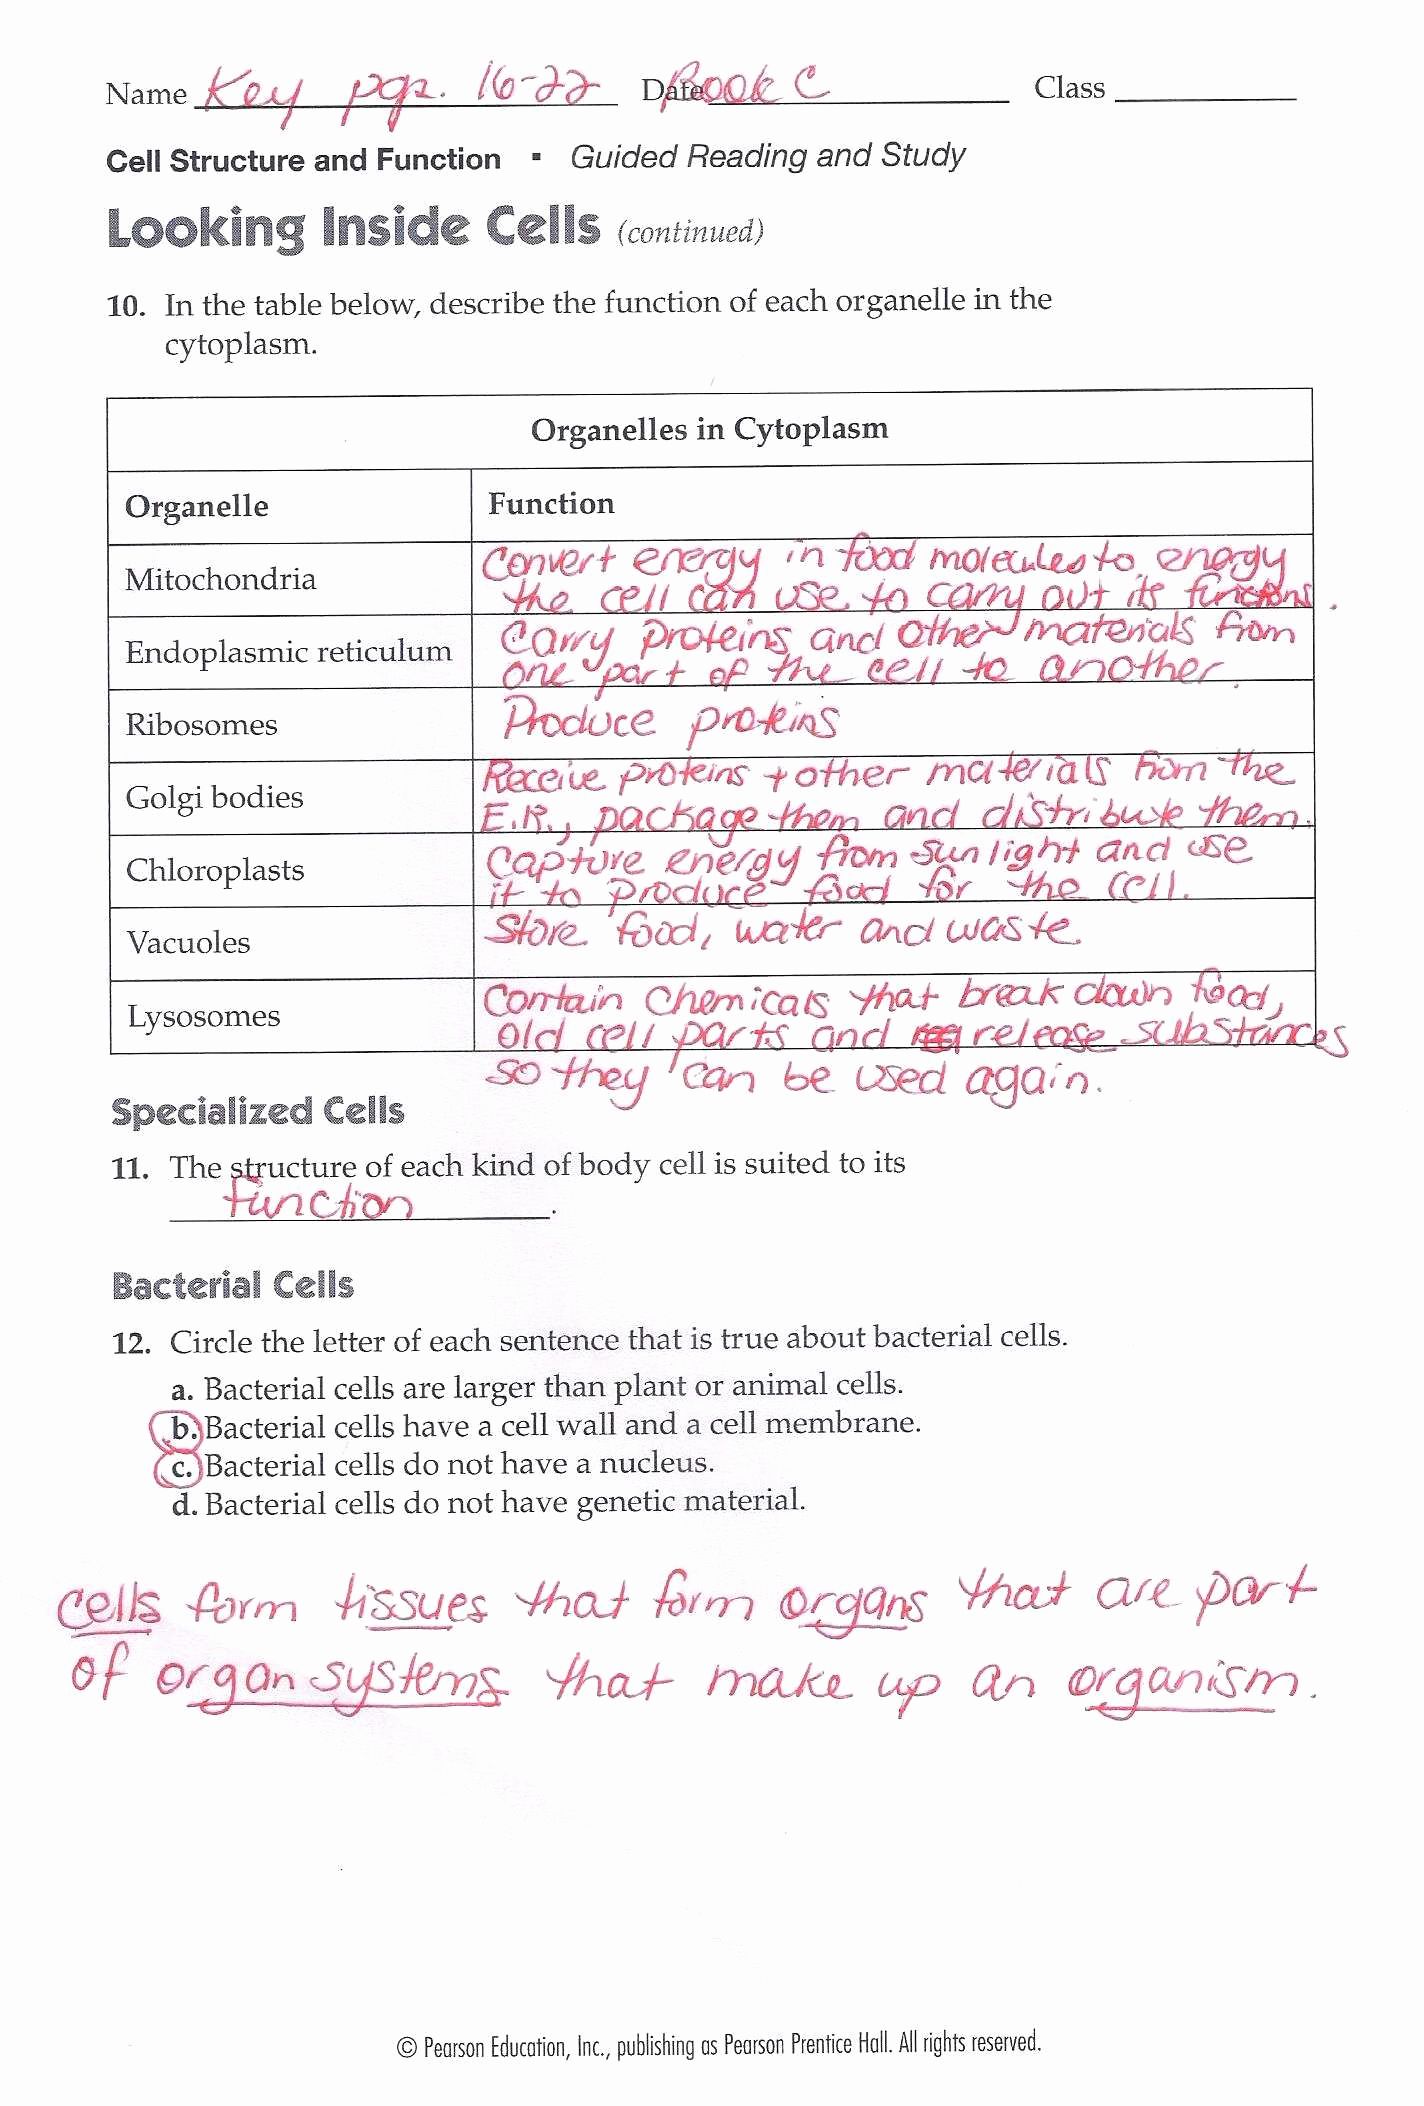 Name Key pgs. 16-22 Date Book C Class
Cell Structure and Function ▪ Guided Reading and Study
Looking Inside Cells (continued)
10. In the table below, describe the function of each organelle in the
cytoplasm.
Organelles in Cytoplasm
Organelle Function
Mitochondria Convert energy in food molecules to energy
the cell can use to carry out its functions.
Endoplasmic reticulum Carry proteins and other materials from
one part of the cell to another.
Ribosomes Produce proteins
Golgi bodies Receive proteins + other materials from the
E.R., package them and distribute them.
Chloroplasts Capture energy from sunlight and use
it to produce food for the cell.
Vacuoles Store food, water and waste.
Lysosomes Contain chemicals that break down food,
old cell parts and release substances
so they can be used again.
Specialized Cells
11. The structure of each kind of body cell is suited to its
function.
Bacterial Cells
12. Circle the letter of each sentence that is true about bacterial cells.
a. Bacterial cells are larger than plant or animal cells.
b. Bacterial cells have a cell wall and a cell membrane.
c. Bacterial cells do not have a nucleus.
d. Bacterial cells do not have genetic material.
cells form tissues that form organs that are part
of organ systems that make up an organism.
© Pearson Education, Inc., publishing as Pearson Prentice Hall. All rights reserved.